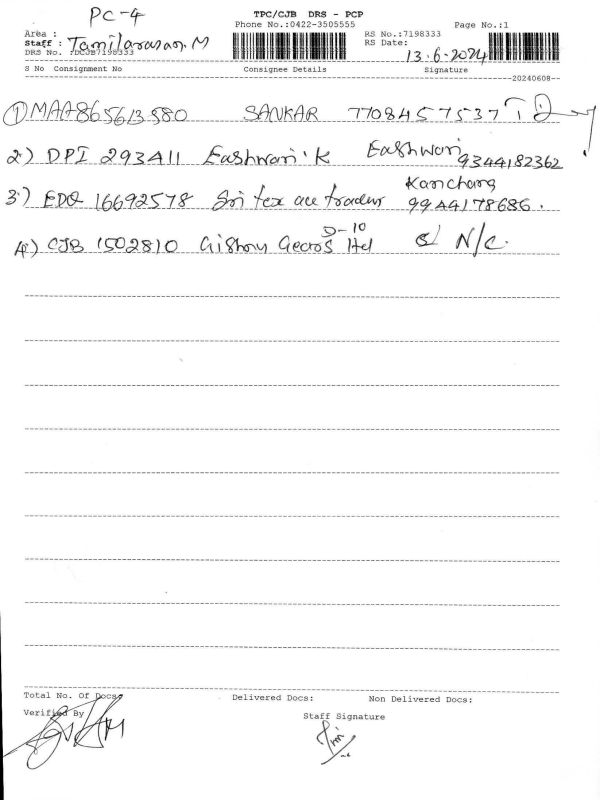 PC-4
TPC/CJB DRS - PCP
Phone No.:0422-3505555 Page No.:1
Area :
Staff : Tamilarasan.M
RS No.:7198333
RS Date: 13.6.2024
DRS No. :DCJB7198333
S No Consignment No Consignee Details Signature
20240608
① MAA865613580 SANKAR 7708457537
2) DPI 293411 Eashwari.K Eashwari 9344182362
3) EDQ 16692578 Sri tex ace traders Kanchana 9944178686.
D-10
4) CJB 1502810 N/C.
Total No. Of Docs: Delivered Docs: Non Delivered Docs:
Verified By
Staff Signature